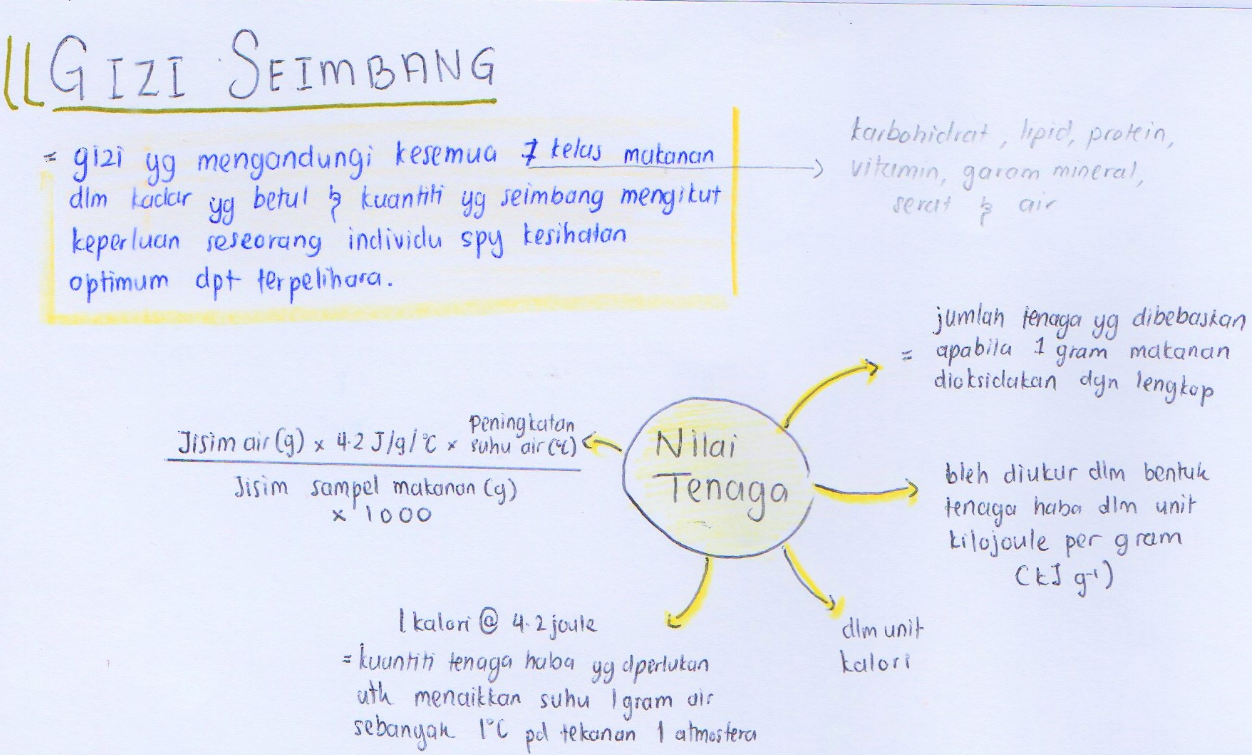 GIZI SEIMBANG
= gizi yg mengandungi kesemua 7 kelas makanan
dlm kadar yg betul & kuantiti yg seimbang mengikut
keperluan seseorang individu spy kesihatan
optimum dpt terpelihara.
karbohidrat, lipid, protein,
vitamin, garam mineral,
serat & air
jumlah tenaga yg dibebaskan
= apabila 1 gram makanan
dioksidakan dgn lengkap
Nilai
Tenaga
Peningkatan
Jisim air (g) × 4.2 J/g/°C × suhu air (°C)
Jisim sampel makanan (g)
× 1000
bleh diukur dlm bentuk
tenaga haba dlm unit
kilojoule per gram
(kJ g⁻¹)
dlm unit
kalori
1 kalori @ 4.2 joule
= kuantiti tenaga haba yg dperlukan
utk menaikkan suhu 1 gram air
sebanyak 1°C pd tekanan 1 atmosfera